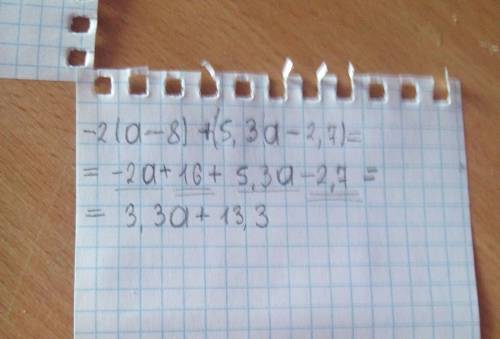 -2(a-8)+(5,3a-2,7)=
= -2a+16+ 5,3a-2,7 =
= 3,3a+13,3